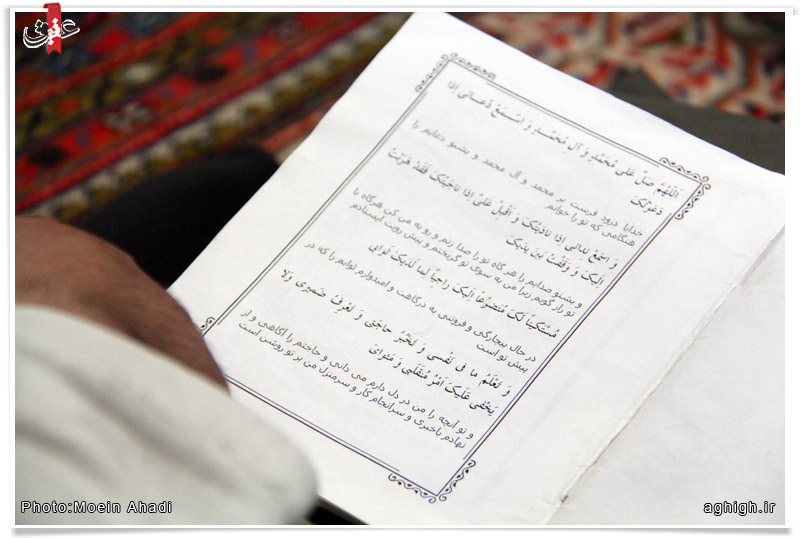 عقیق
اَللّهُمَّ صَلِّ عَلى مُحَمَّدٍ وَ آلِ مُحَمَّدٍ وَ اسْمَعْ دُعائى اِذا
دَعَوْتُکَ
خدایا درود فرست بر محمد و آل محمد و بشنو دعایم را
هنگامی که تو را خوانم
وَ اسْمَعْ نِدائى اِذا نادَیْتُکَ وَ اَقْبِلْ عَلَىَّ اِذا ناجَیْتُکَ فَقَدْ هَرَبْتُ
اِلَیْکَ وَ وَقَفْتُ بَیْنَ یَدَیکَ
و بشنو صدایم را هر گاه تو را صدا زنم و رو به من کن هرگاه با
تو راز گویم زیرا من به سوی تو گریختم و پیش رویت ایستادم
مُسْتَکیناً لَکَ مُتَضَرِّعاً اِلَیْکَ راجِیاً لِما لَدَیْکَ ثَوابى
در حال بیچارگی و فروتنی به درگاهت و امیدوارم ثوابم را که در
پیش تو است
وَ تَعْلَمُ ما فى نَفْسى وَ تَخْبُرُ حاجَتى وَ تَعْرِفُ ضَمیرى وَلا
یَخْفى عَلَیْکَ اَمْرُ مُنْقَلَبى وَ مَثْواىَ
و تو آنچه را من در دل دارم می دانی و حاجتم را آگاهی و از
نهادم باخبری و سرانجام کار و سرمنزل من بر تو روشن است
Photo:Moein Ahadi
aghigh.ir